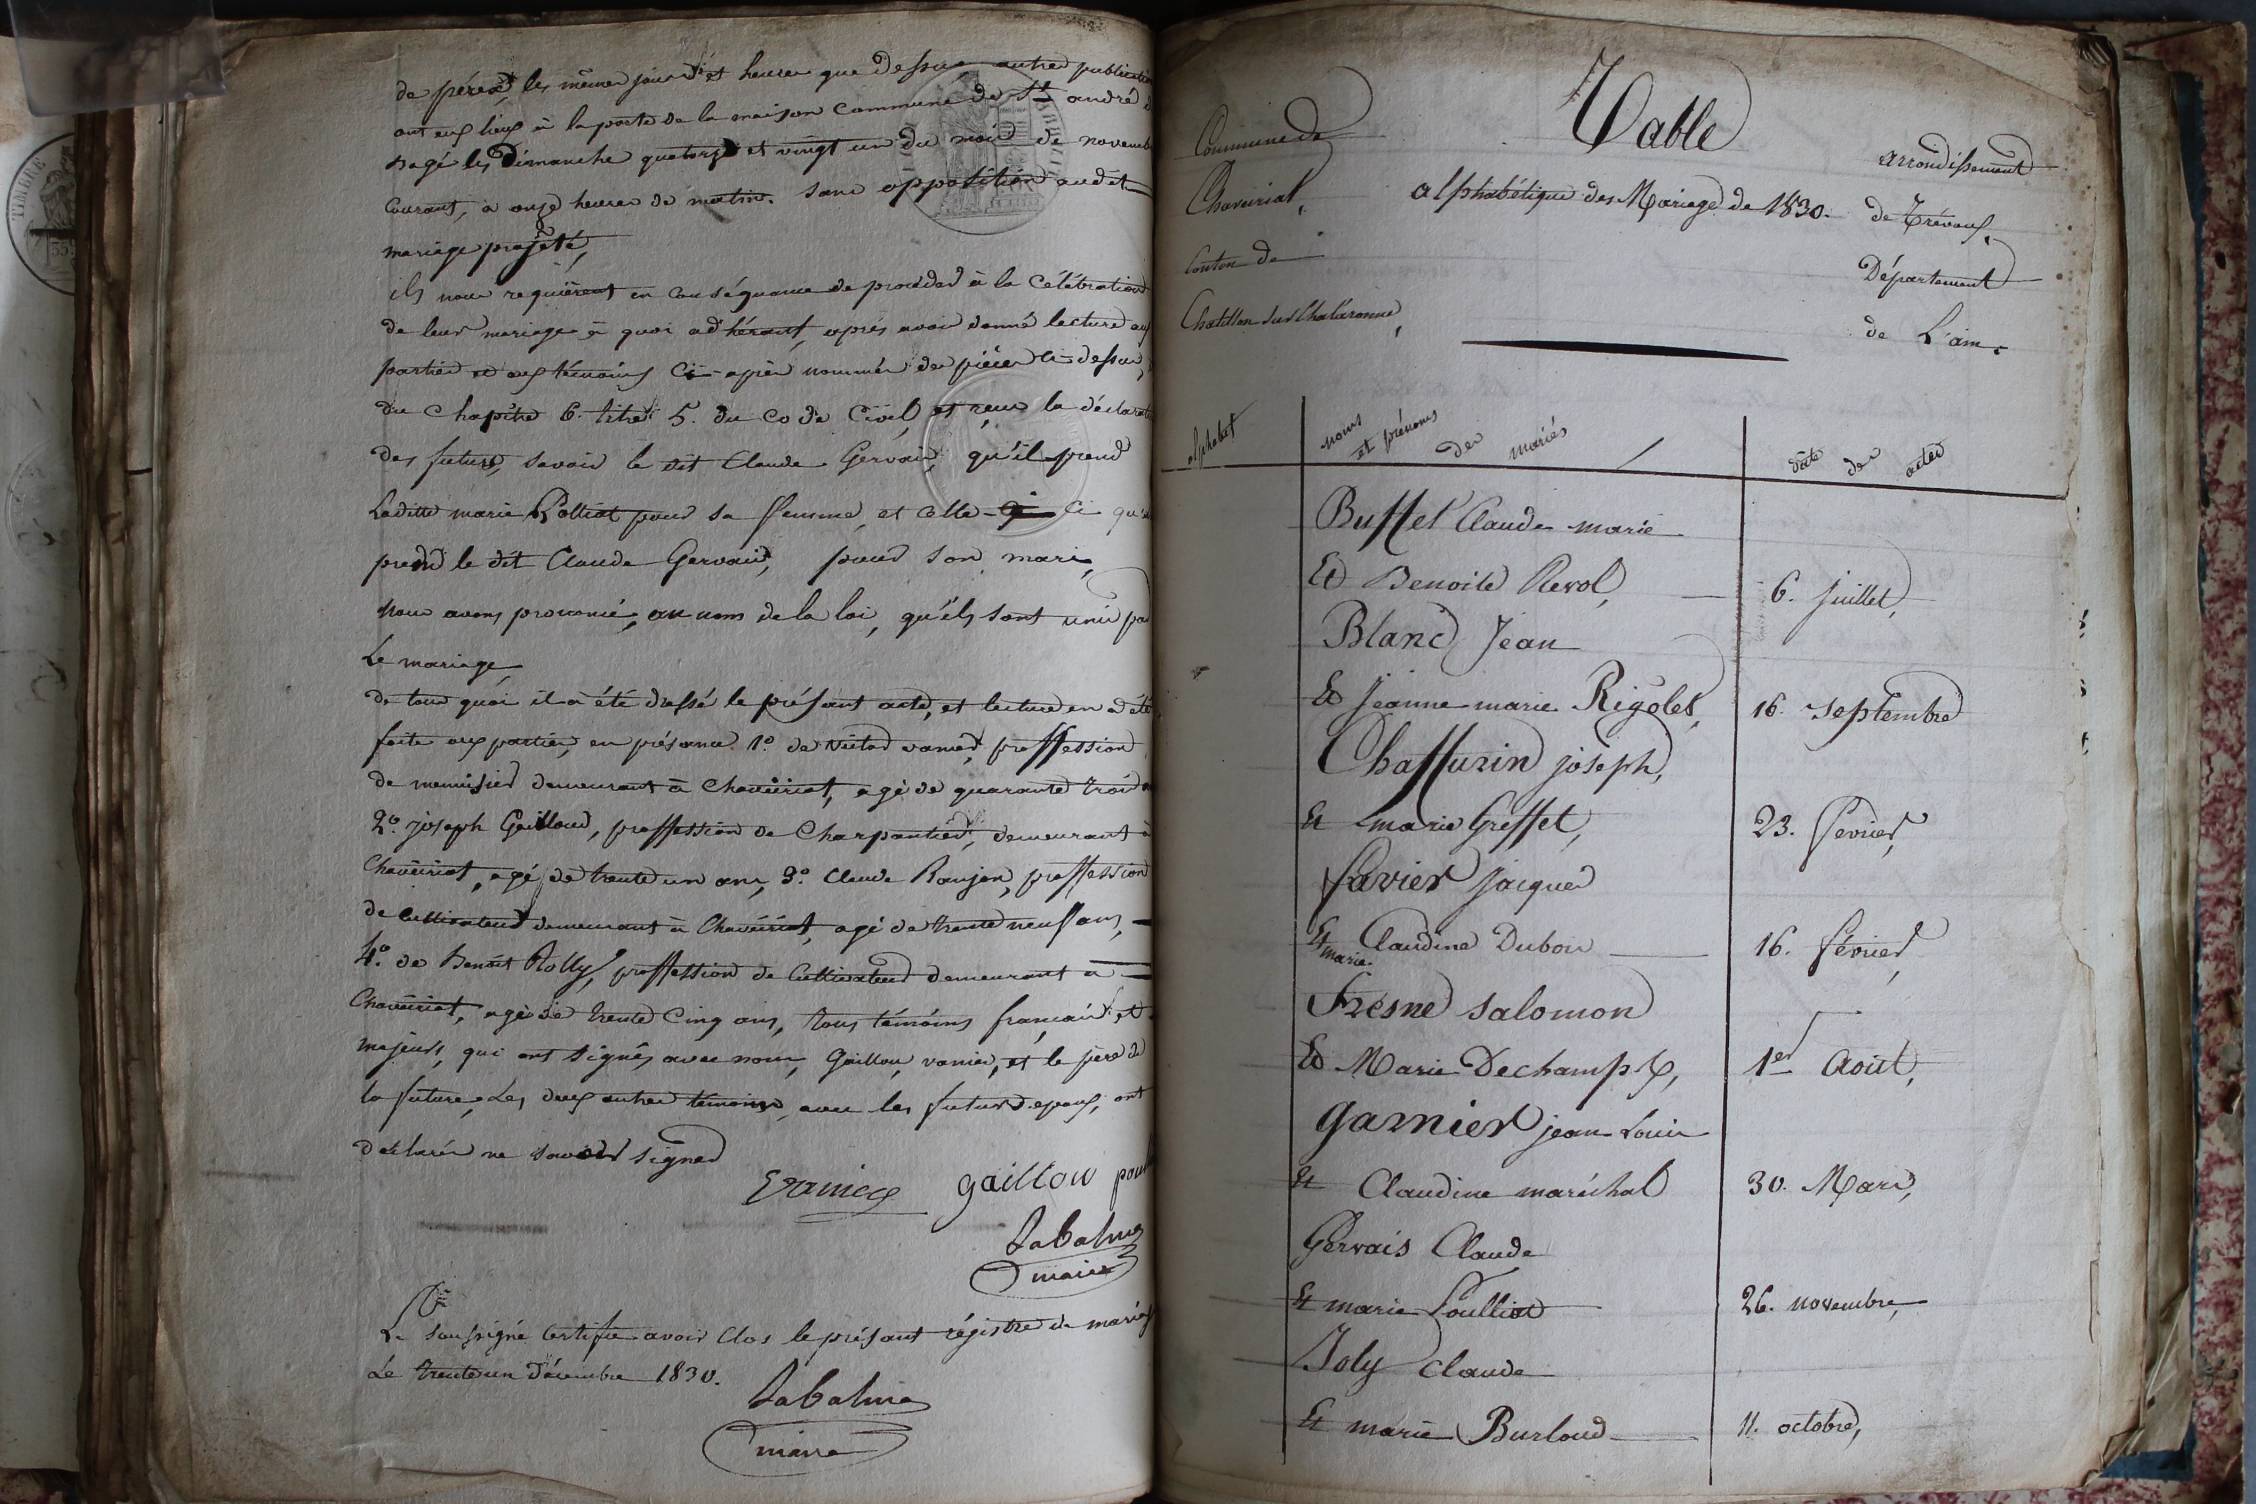 de pérex, les mêmes jours et heures que dessus autres publications
ont eus lieux à la porte de la maison Commune de St andré
les Dimanche quatorze et vingt un du mois de novembre
Courant, à onze heures du matin. sans opposition audit
mariage projeté,
ils nous requièrent en conséquance de procéder à la Célébration
de leur mariage à quoi adhérant, après avoir donné lecture aux
parties et aux témoins Ci-après nommés des pièces ci dessus,
du Chapitre 6. titre 5. du Code Civil, et reçu la déclaration
des futurs, savoir le dit Claude Gervais, qu'il prend
Laditte marie Polliat pour sa femme, et celle Ci qu'elle
prend le dit Claude Gervais, pour son mari,
Nous avons prononcé, au nom de la loi, qu'ils sont unis par
Le mariage,
de tout quoi il a été dressé le présant acte, et lecture en a été
faite aux parties, en présance 1.° de Victor vanier, proffession
de menuisier demeurant à Chaveiriat, agé de quarante trois
2.° joseph Gaillou, proffession de Charpantier, demeurant à
Chaveiriat, agé de trente un ans, 3.° Claude Ranjon, proffession
de Cultivateur demeurant à Chaveiriat, agé de trente neuf ans,
4.° de Benoît Rolly, proffession de Cultivateur demeurant à
Chaveiriat, agé de trente Cinq ans, tous témoins français et
majeurs, qui ont signés avec nous, Gaillou, vanier, et le père de
la future, Les deux autres témoins, avec les futurs epoux, ont
déclarés ne savoir signer
Vanier gaillou
Labalme
maire
Le soussigné Certifie avoir Clos le présant régistre de mariage
Le trente un Décembre 1830.
Labalme
maire
Table
Commune de
Chaveiriat,
Canton de
Chatillon sur Chalaronne,
alphabétique des Mariage de 1830.
arrondissement
de Trévoux,
Département
de L'ain.
alphabet
noms et prénoms des mariés
date des actes
Buffet Claude marie
Et Benoite Revol, 6. juillet,
Blanc Jean
Et Jeanne marie Rigolet, 16. septembre
Chaffurin joseph,
Et marie Greffet, 23. fevrier,
favier jacques
Et marie Claudine Dubois 16. février,
Fresne salomon
Et Marie Dechampt, 1er Août,
garnier jean Louis
Et Claudine maréchal 30. Mars,
Gervais Claude
Et marie Poulliat 26. novembre,
Joly Claude
Et marie Burloud 11. octobre,